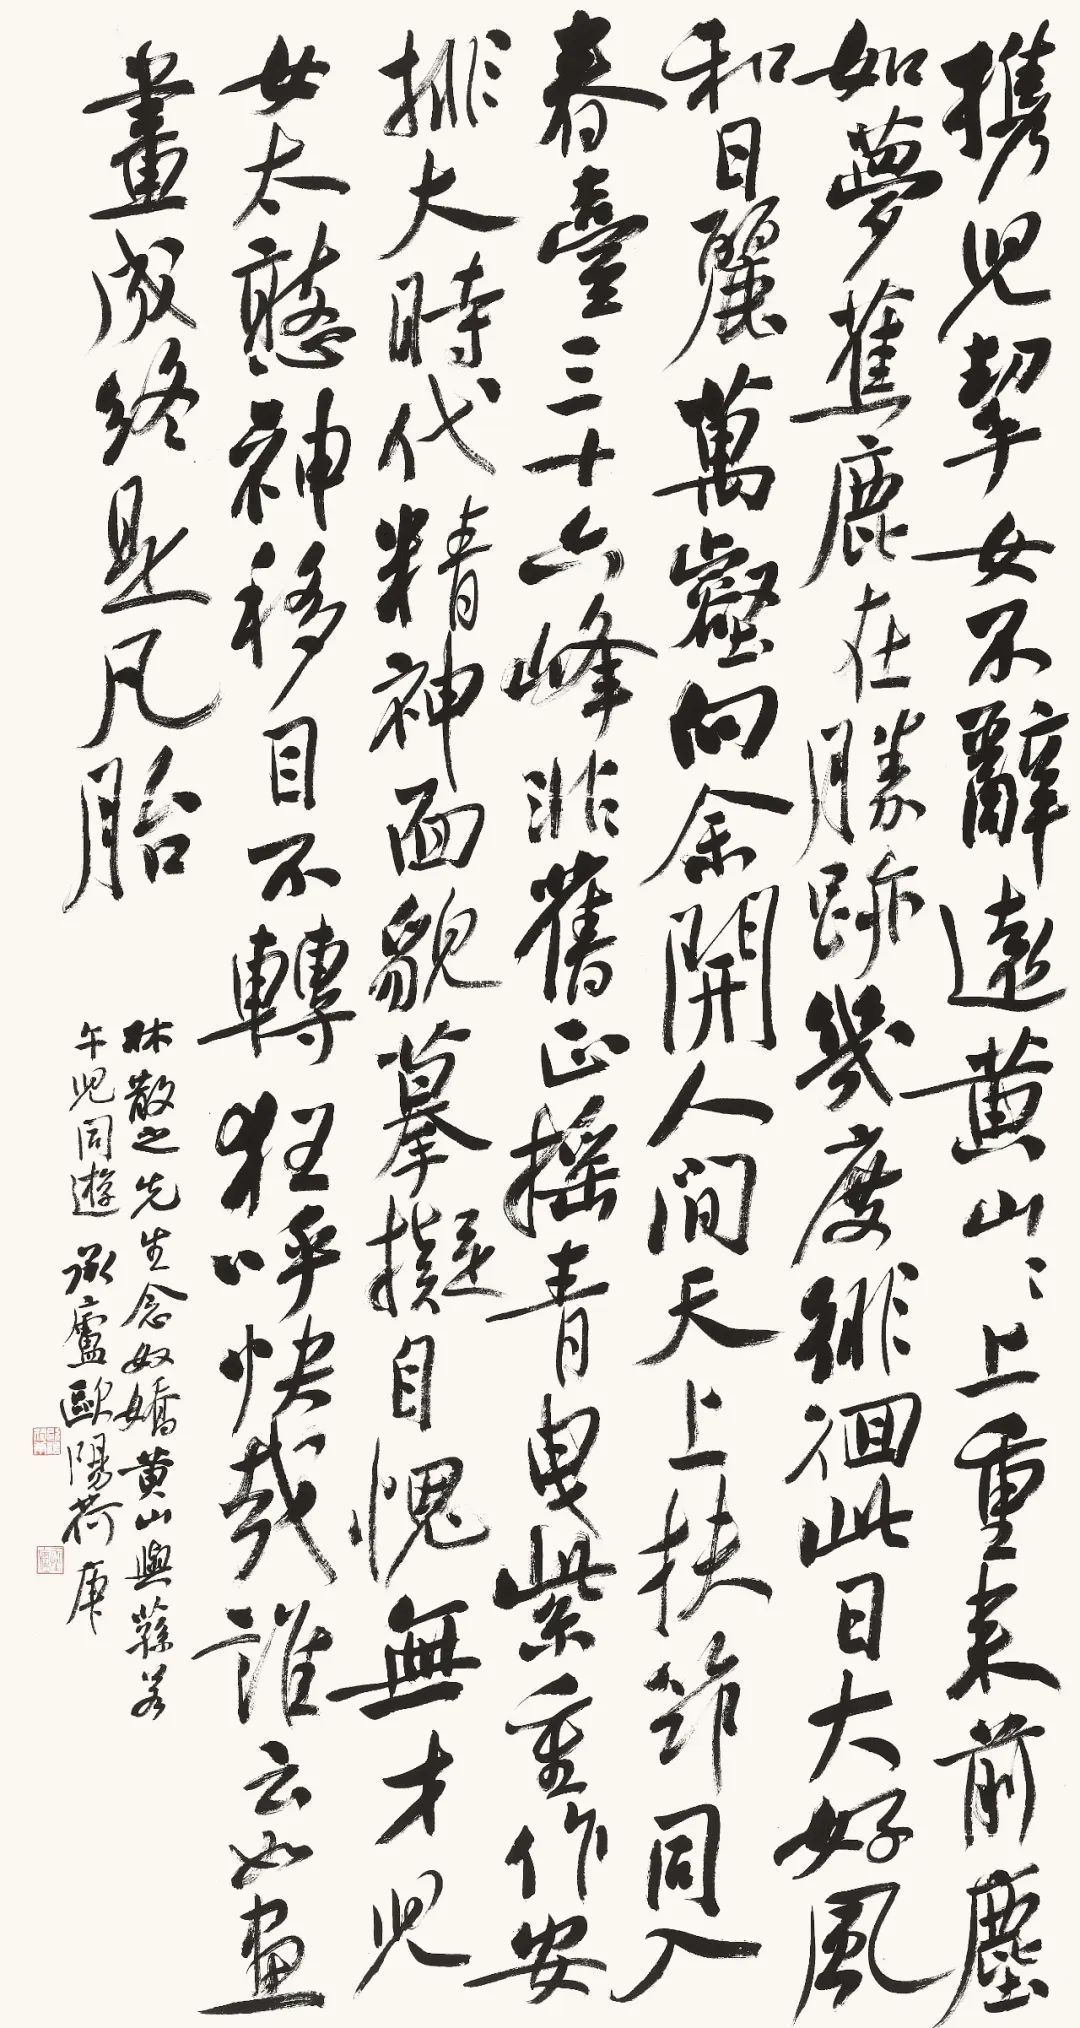 携兒挈女不辭遠黄山〻上重来前塵
如夢蕉鹿在勝跡幾度徘徊此日大好風
和日麗萬壑向余開人間天上扶筇同入
春臺三十六峰非舊正摇青曳紫重作安
排大時代精神面貌摹擬自愧無才兒
女太憨神移目不轉狂呼快哉誰云如畫
畫成終是凡胎
林散之先生念奴嬌黄山與蓀若
午兒同遊 承廬歐陽荷庚